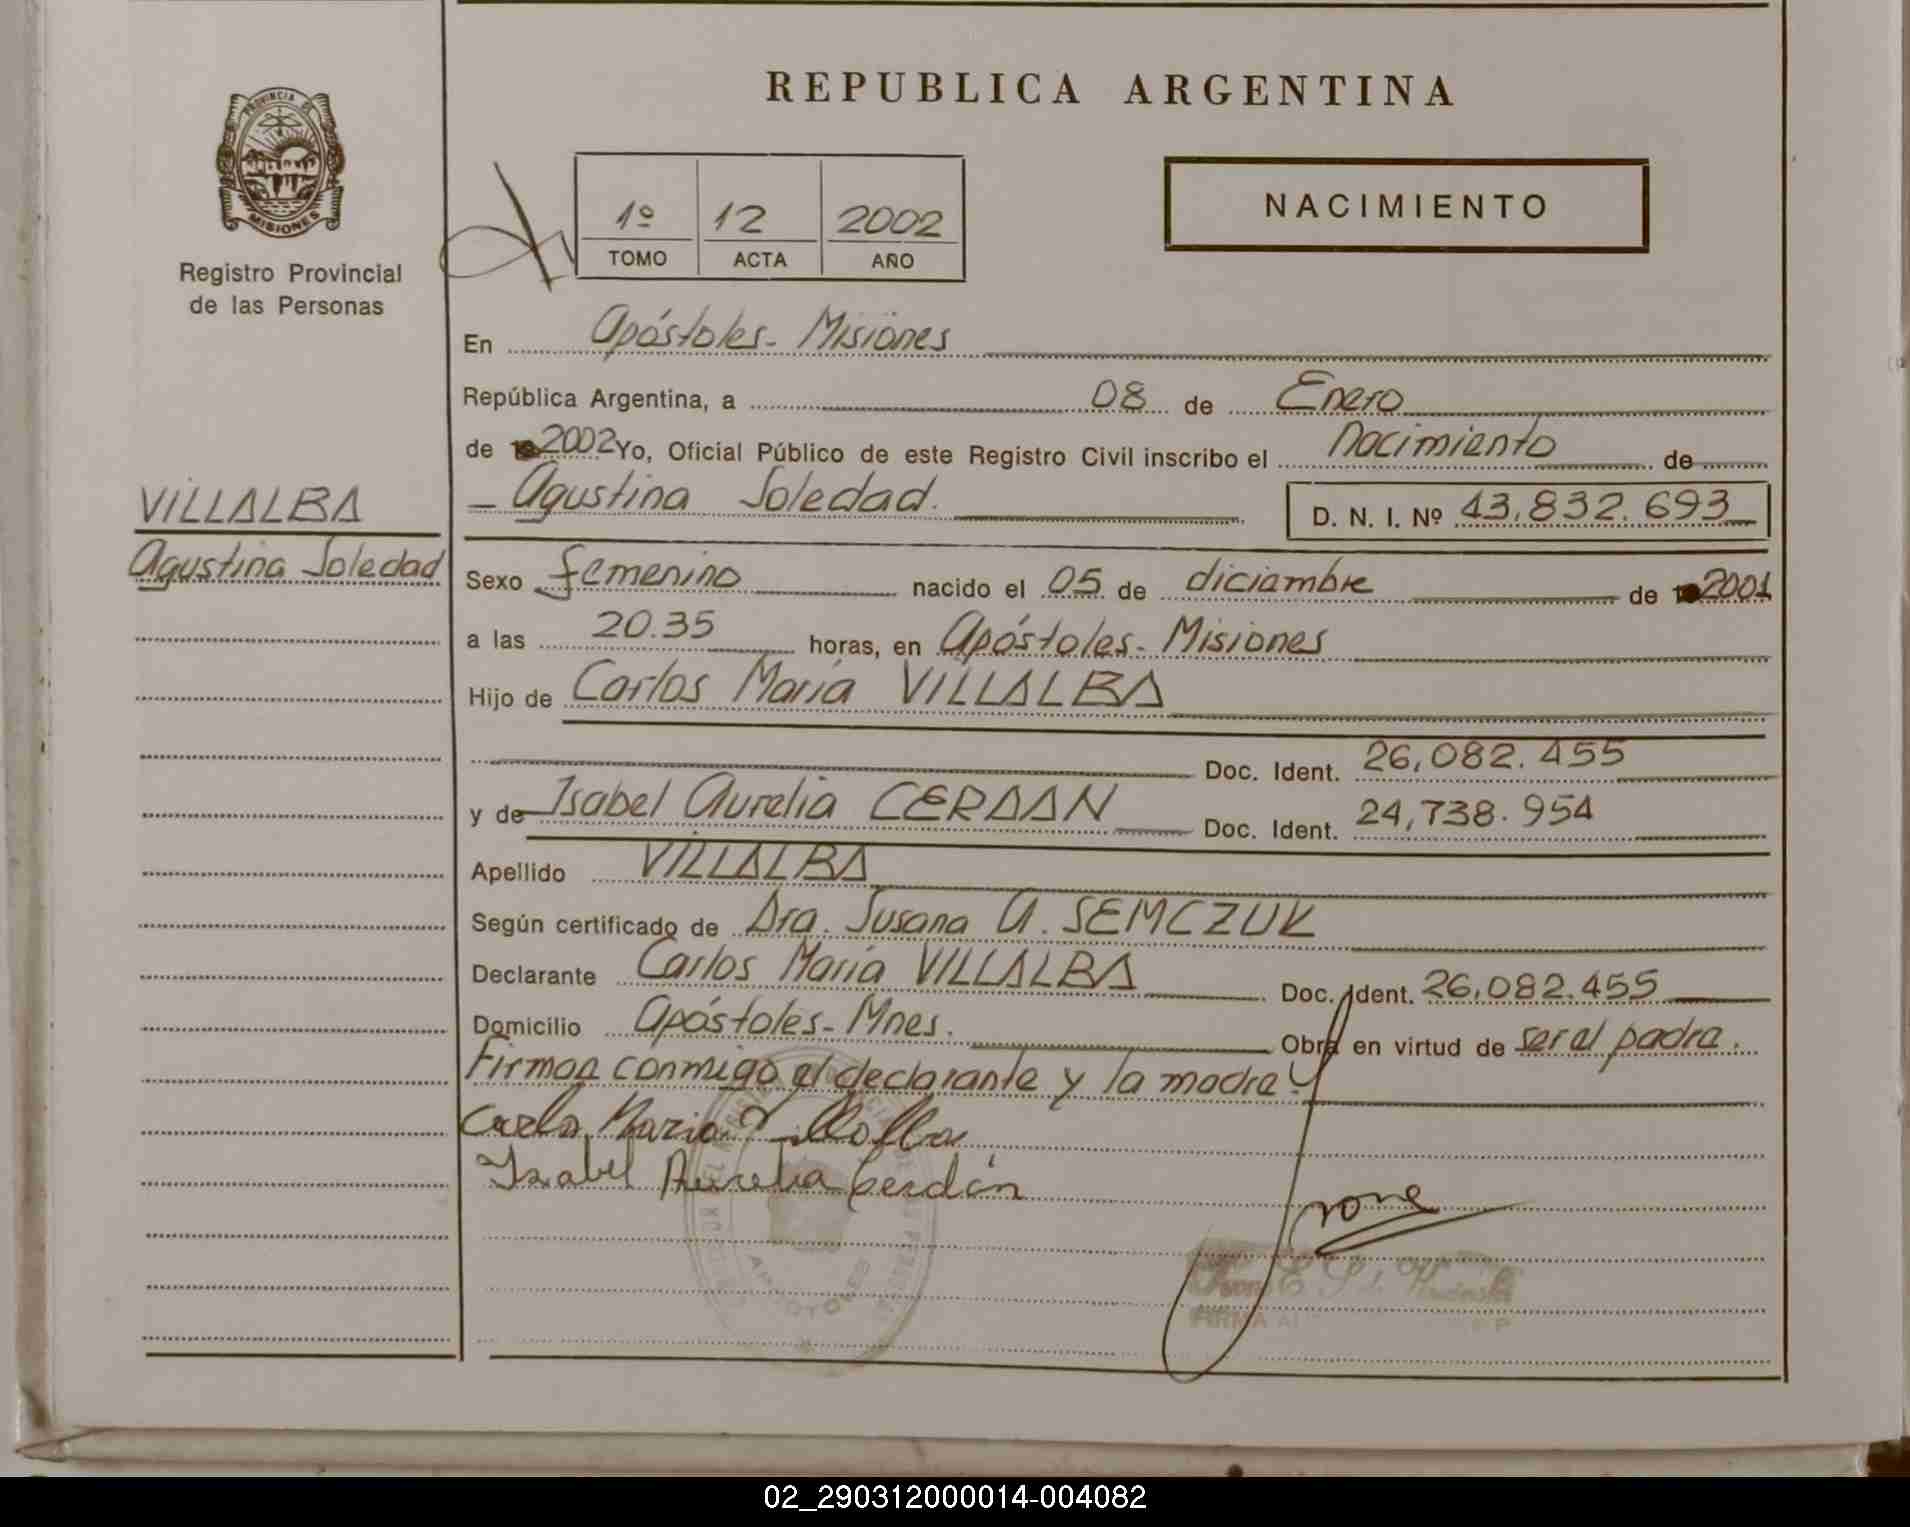 REPUBLICA ARGENTINA
PROVINCIA DE
MISIONES
Registro Provincial
de las Personas
1º 12 2002
TOMO ACTA AÑO
NACIMIENTO
VILLALBA
Agustina Soledad
En Apóstoles - Misiones
República Argentina, a 08 de Enero
de 2002 Yo, Oficial Público de este Registro Civil inscribo el nacimiento de
Agustina Soledad. D. N. I. Nº 43.832.693
Sexo femenino nacido el 05 de diciembre de 2001
a las 20.35 horas, en Apóstoles - Misiones
Hijo de Carlos María VILLALBA
Doc. Ident. 26.082.455
y de Isabel Aurelia CERDAN Doc. Ident. 24.738.954
Apellido VILLALBA
Según certificado de Dra. Susana A. SEMCZUK
Declarante Carlos María VILLALBA Doc. Ident. 26.082.455
Domicilio Apóstoles - Mnes. Obra en virtud de ser el padre.
Firman conmigo el declarante y la madre
Carlos Maria Villalba
Isabel Aurelia Cerdán
APOSTOLES
FIRMA
02_290312000014-004082